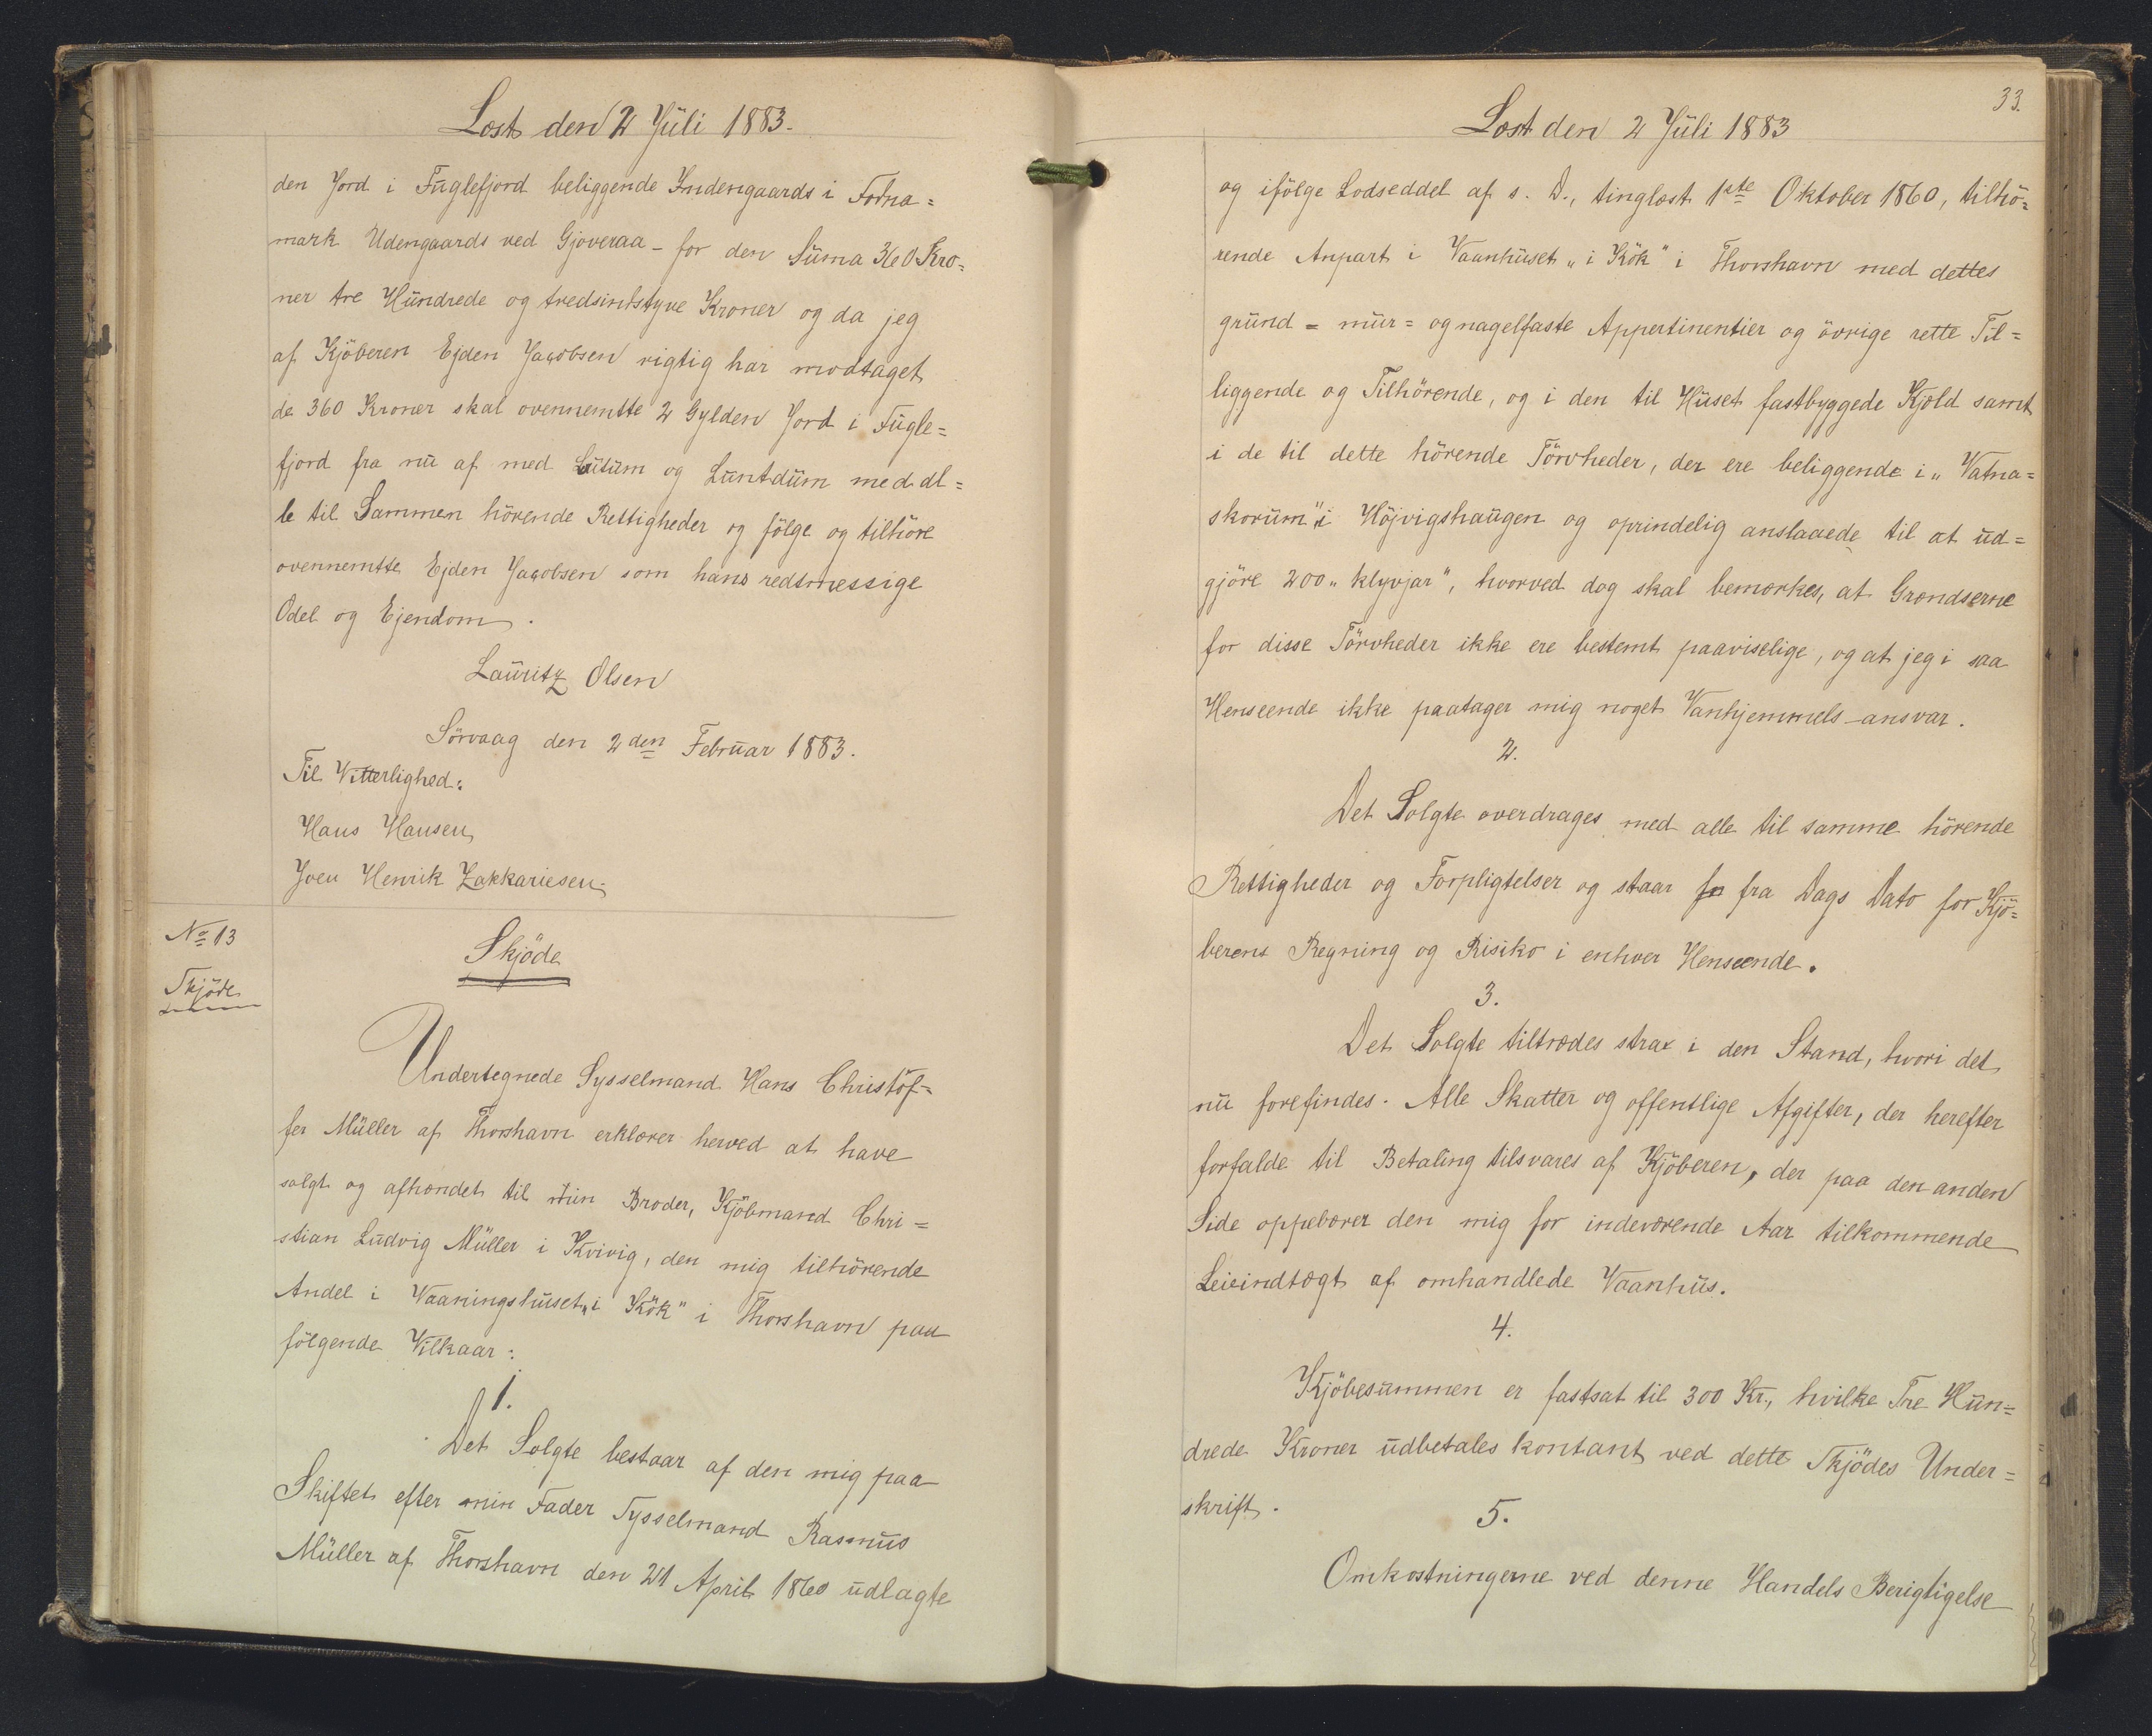 Læst den 2 Juli 1883.
den Jord i Fuglefjord beliggende Indengaards i Fodna=
mark Udengaards ved Gjoveraa - for den Suma 360 Kro=
ner tre Hundrede og tredsindstyve Kroner og da jeg
af Kjöberen Ejden Jacobsen rigtig har modtaget
de 360 Kroner skal ovennemtte 2 Gylden Jord i Fugle=
fjord fra nu af med Lutum og Luntdum med al=
le til Sammen hörende Rettigheder og fölge og tilhöre
ovennemtte Ejden Jacobsen som hans redsmessige
Odel og Ejendom.
Lauritz Olsen
Sörvaag den 2den Februar 1883.
Til Vitterlighed:
Hans Hansen
Joen Henrik Zakkariesen
No 13
Skjöde
Skjöde
Undertegnede Sysselmand Hans Christof=
fer Müller af Thorshavn erklærer herved at have
solgt og afhændet til min Broder, Kjöbmand Chri=
stian Ludvig Müller i Kvivig, den mig tilhörende
Andel i Vaaningshuset „i Kök" i Thorshavn paa
fölgende Vilkaar:
1.
Det Solgte bestaar af den mig paa
Skiftet efter min Fader Sysselmand Rasmus
Müller af Thorshavn den 21 April 1860 udlagte
33.
Læst den 2 Juli 1883
og ifölge Lodseddel af s. D., tinglæst 1ste Oktober 1860, tilhö=
rende Anpart i Vaanhuset „i Kök" i Thorshavn med dettes
grund= mur= og nagelfaste Appertinentier og övrige rette Til=
liggende og Tilhörende, og i den til Huset fastbyggede Kjold samt
i de til dette hörende Törvheder, der ere beliggende i „Vatna=
skorum" i Höjvigshaugen og oprindelig anslaaede til at ud=
gjöre 200 „klyvjar", hvorved dog skal bemærkes, at Grændserne
for disse Törvheder ikke ere bestemt paaviselige, og at jeg i saa
Henseende ikke paatager mig noget Vanhjemmels-ansvar.
2.
Det Solgte overdrages med alle til samme hörende
Rettigheder og Forpligtelser og staar fra Dags Dato for Kjö=
berens Regning og Risiko i enhver Henseende.
3.
Det Solgte tiltrædes strax i den Stand, hvori det
nu forefindes. Alle Skatter og offentlige Afgifter, der herefter
forfalde til Betaling tilsvares af Kjöberen, der paa den anden
Side oppebærer den mig for indeværende Aar tilkommende
Leieindtægt af omhandlede Vaanhus.
4.
Kjöbesummen er fastsat til 300 Kr., hvilke Tre Hun=
drede Kroner udbetales kontant ved dette Skjödes Under=
skrift.
5.
Omkostningerne ved denne Handels Berigtigelse